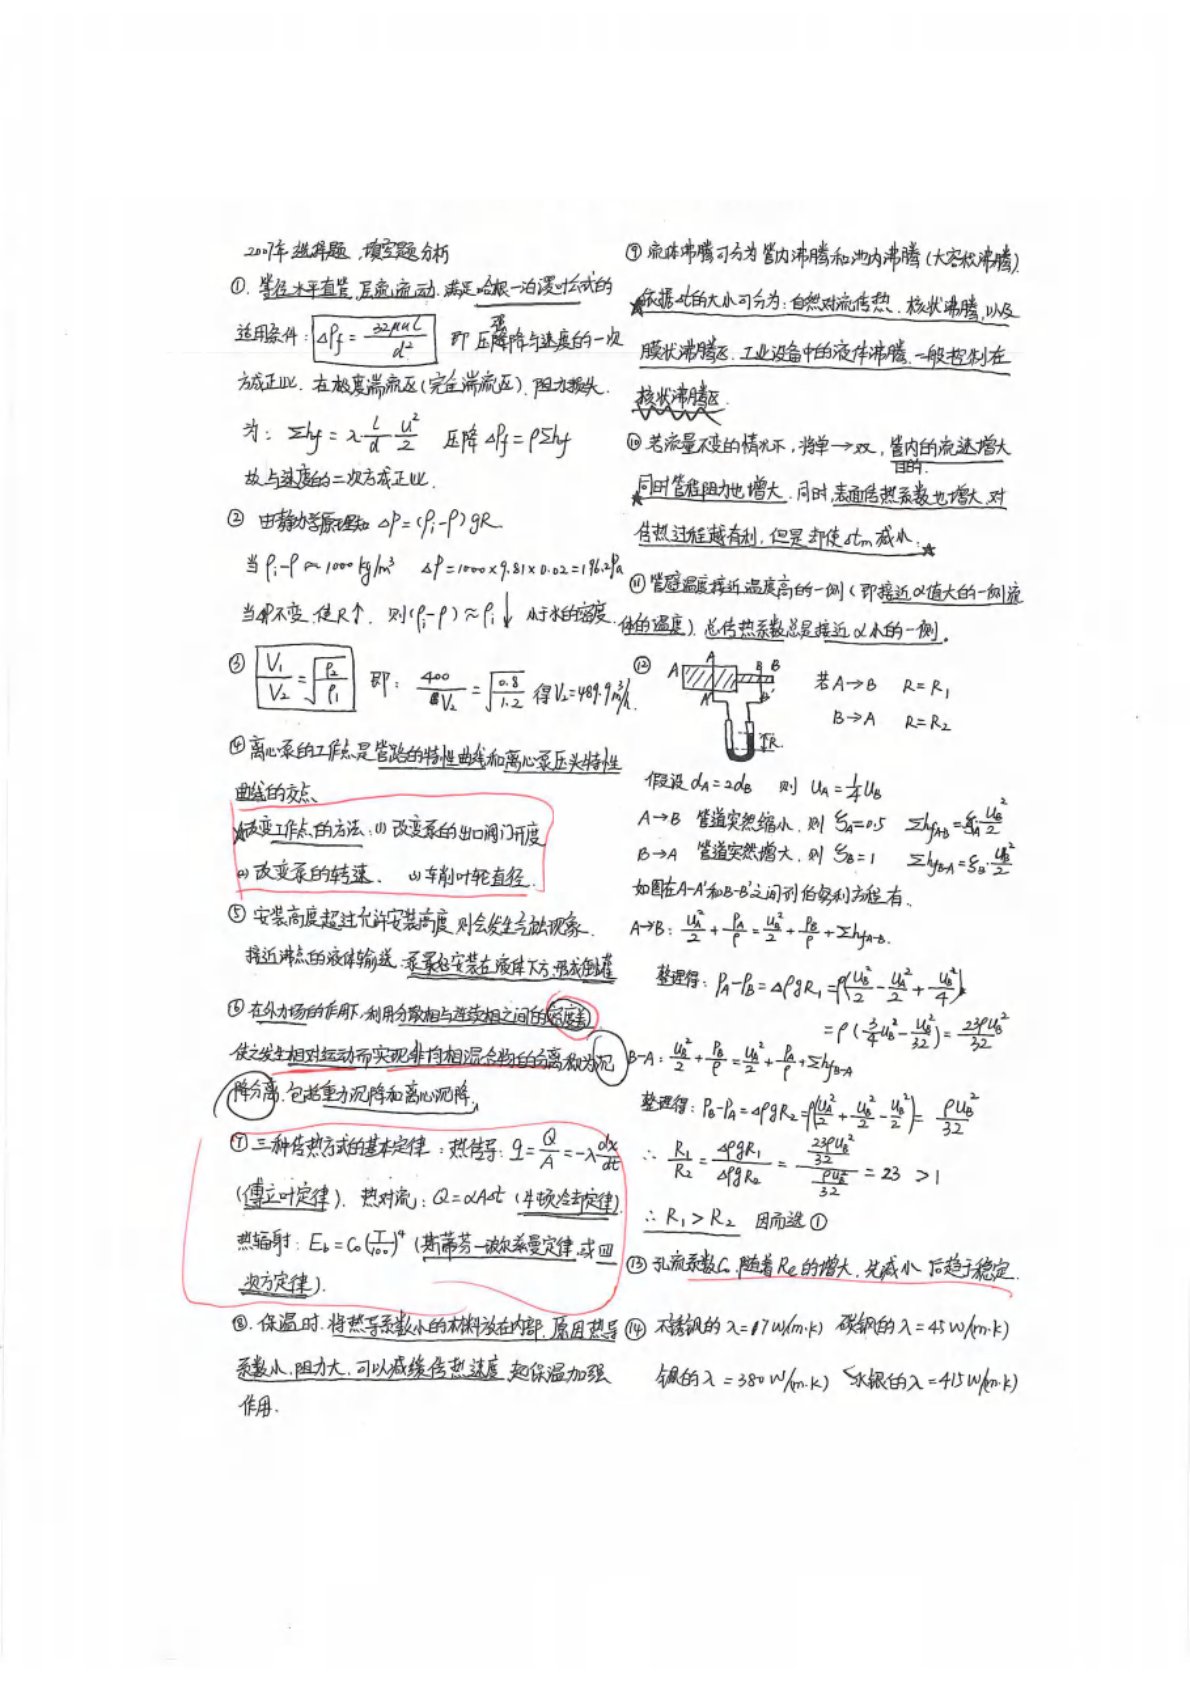 2007年选择题、填空题分析
①. 等径水平直管,层流流动.满足哈根一泊谡叶公式的
适用条件: ΔPf = 32μul/d² 即压强降与速度的一次
方成正比. 在极度湍流区(完全湍流区).阻力损失.
为: Σhf = λ·l/d·u²/2 压降 ΔPf = ρΣhf
故与速度的二次方成正比.
② 由静力学原理知 ΔP=(ρi-ρ)gR
当 ρi-ρ≈1000 kg/m³ ΔP=1000×9.81×0.02=196.2Pa
当ΔP不变.使R↑. 则(ρi-ρ)≈ρi↓ 小于水的密度.
③ V₁/V₂=√(ρ₂/ρ₁) 即: 400/V₂=√(0.8/1.2) 得V₂=489.9m³/h.
④ 离心泵的工作点是管路的特性曲线和离心泵压头特性
曲线的交点、
☆改变工作点的方法:(1) 改变泵的出口阀门开度
(2) 改变泵的转速. (3) 车削叶轮直径.
⑤ 安装高度超过允许安装高度 则会发生气蚀现象.
接近沸点的液体输送.泵最好安装在液体下方.形成倒罐
⑥ 在外力场的作用下,利用分散相与连续相之间的密度差
使之发生相对运动而实现非均相混合物的分离称为沉
降分离.包括重力沉降和离心沉降.
⑦ 三种传热方式的基本定律:热传导: q=Q/A=-λdx/dt
(傅立叶定律). 热对流: Q=αAΔt (牛顿冷却定律).
热辐射: Eb=C₀(T/100)⁴ (斯蒂芬一波尔茨曼定律.或四
次方定律).
⑧. 保温时.将热导系数小的材料放在内部.原因热导
系数小.阻力大.可以减缓传热速度 起保温加强
作用.
⑨ 流体沸腾可分为管内沸腾和池内沸腾(大容积沸腾).
☆依据Δt的大小可分为:自然对流传热.核状沸腾,以及
膜状沸腾区.工业设备中的液体沸腾.一般控制在
核状沸腾区.
⑩ 若流量不变的情况下,将单→双,管内的流速增大
目的.
☆同时管程阻力也增大.同时,表面传热系数也增大.对
传热过程越有利,但是却使Δtm减小.☆
⑪ 管壁温度接近温度高的一侧(即接近α值大的一侧流
体的温度). 总传热系数总是接近α小的一侧.
⑫ A A A' B B B' R 若A→B R=R₁
B→A R=R₂
假设 dA=2dB 则 uA=1/4uB
A→B 管道突然缩小.则 ζA=0.5 ΣhfAB=ζA·uB²/2
B→A 管道突然增大.则 ζB=1 ΣhfB-A=ζB·uB²/2
如图在A-A'和B-B'之间列伯努利方程有、
A→B: uA²/2+PA/ρ=uB²/2+PB/ρ+ΣhfA-B.
整理得: PA-PB=ΔρgR₁=ρ(uB²/2-uA²/2+uB²/4)
=ρ(3/4uB²-uB²/32)=23ρuB²/32
B-A: uB²/2+PB/ρ=uA²/2+PA/ρ+ΣhfB-A
整理得: PB-PA=ΔρgR₂=ρ(uA²/2+uB²/2-uB²/2)=ρuB²/32
∴ R₁/R₂=ΔρgR₁/ΔρgR₂=(23ρuB²/32)/(ρuB²/32)=23 >1
∴ R₁>R₂ 因而选①
⑬ 孔流系数C₀.随着Re的增大.先减小 后趋于稳定.
⑭ 不锈钢的 λ=17W/(m·k) 碳钢的λ=45W/(m·k)
铜的λ=380W/(m·k) 水银的λ=415W/(m·k)